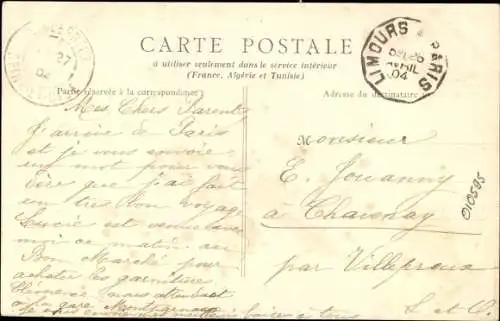 CARTE POSTALE
à utiliser seulement dans le service intérieur
(France, Algérie et Tunisie)
Partie réservée à la correspondance
Adresse du destinataire
LIMOURS A PARIS
26
AVRIL
04
27
04
Mes Chers Parents
J'arrive de Paris
et je vous envoie
un mot pour vous
dire que j'ai fait
un très bon voyage
Lucie est venue avec
moi ce matin au
Bon Marché pour
acheter les garniture
Clémence nous attendait
à la gare Montparnasse
à tous
Monsieur
E. Jouanny
à Chavenay
par Villepreux
S. et O.
010595